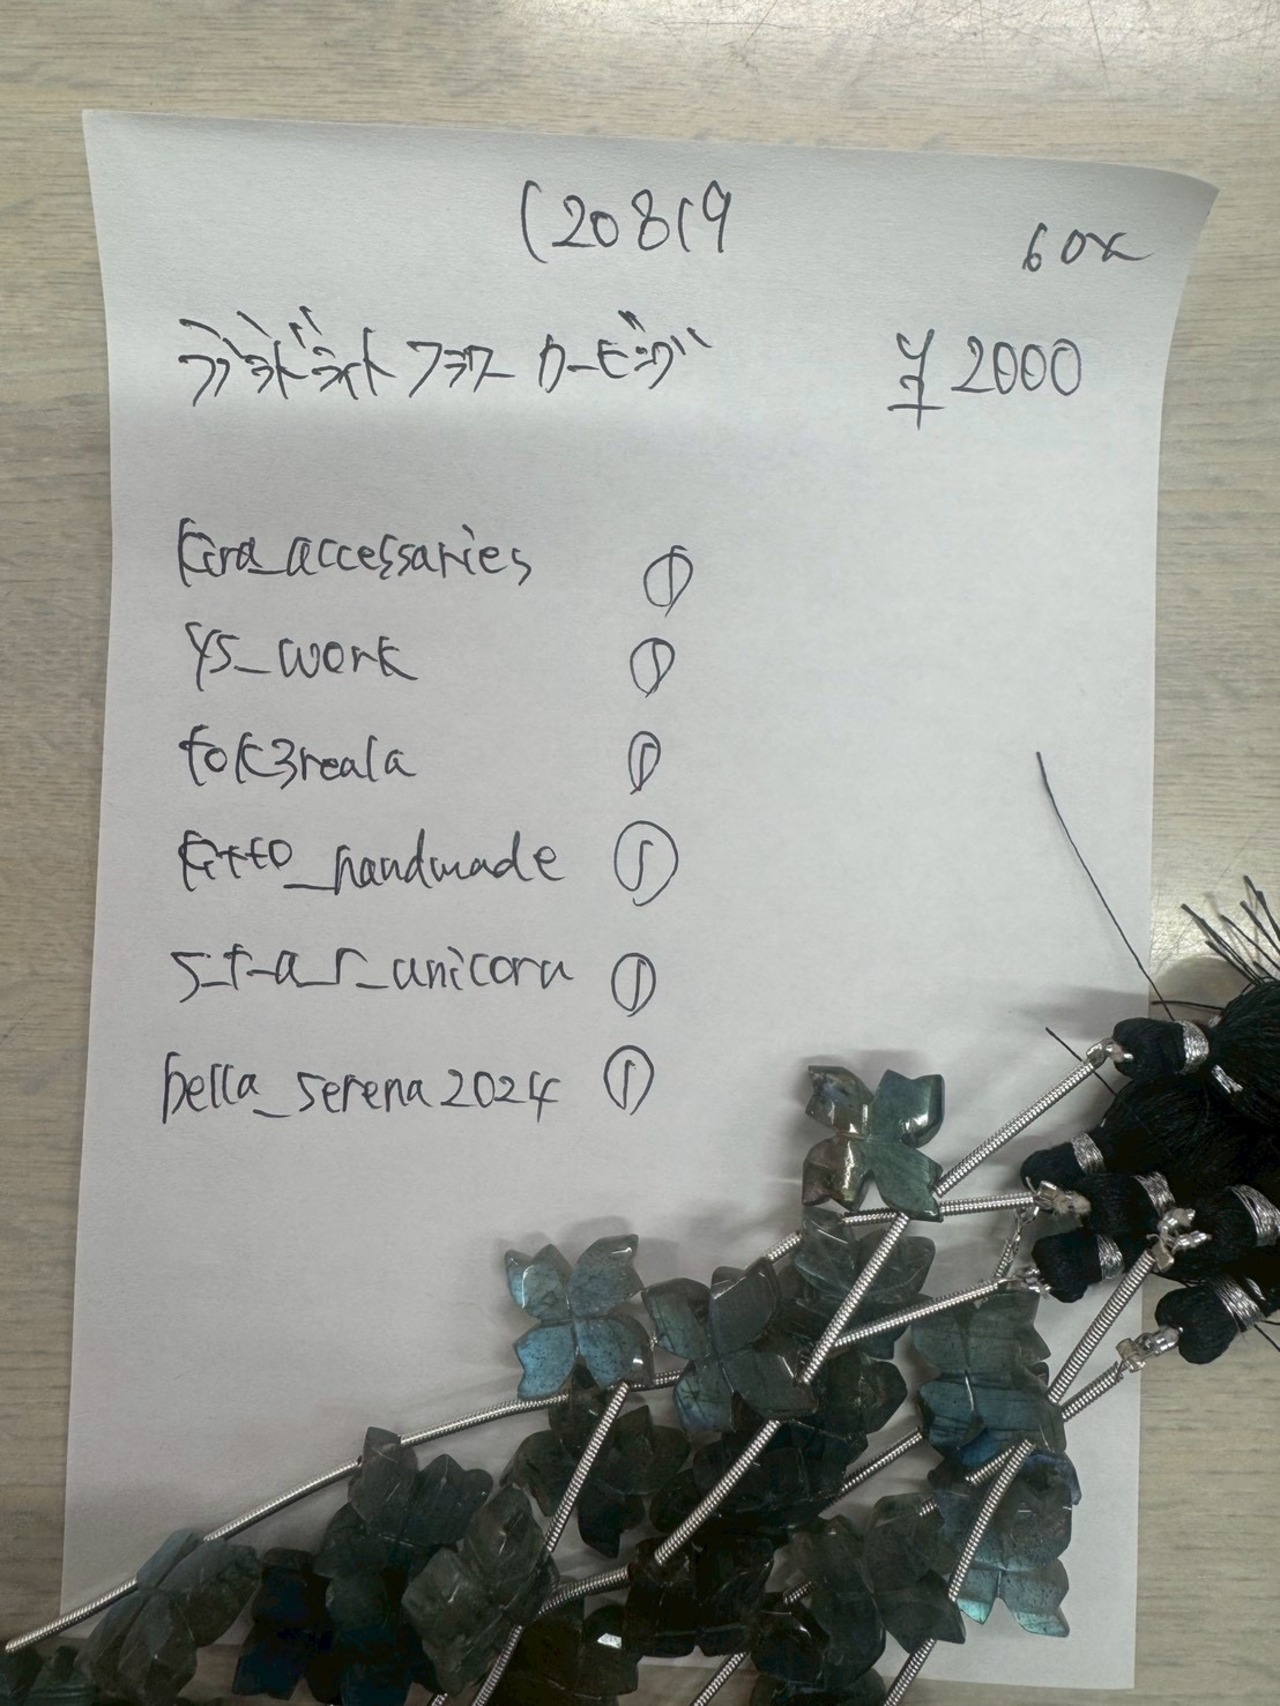 120819
60x
ラブラドライト フラワー カービング ¥2000
kira_accessaries ①
ys_work ①
tok3reala ①
kitto_handmade ①
s_t_a_r_unicorn ①
bella_serena2024 ①